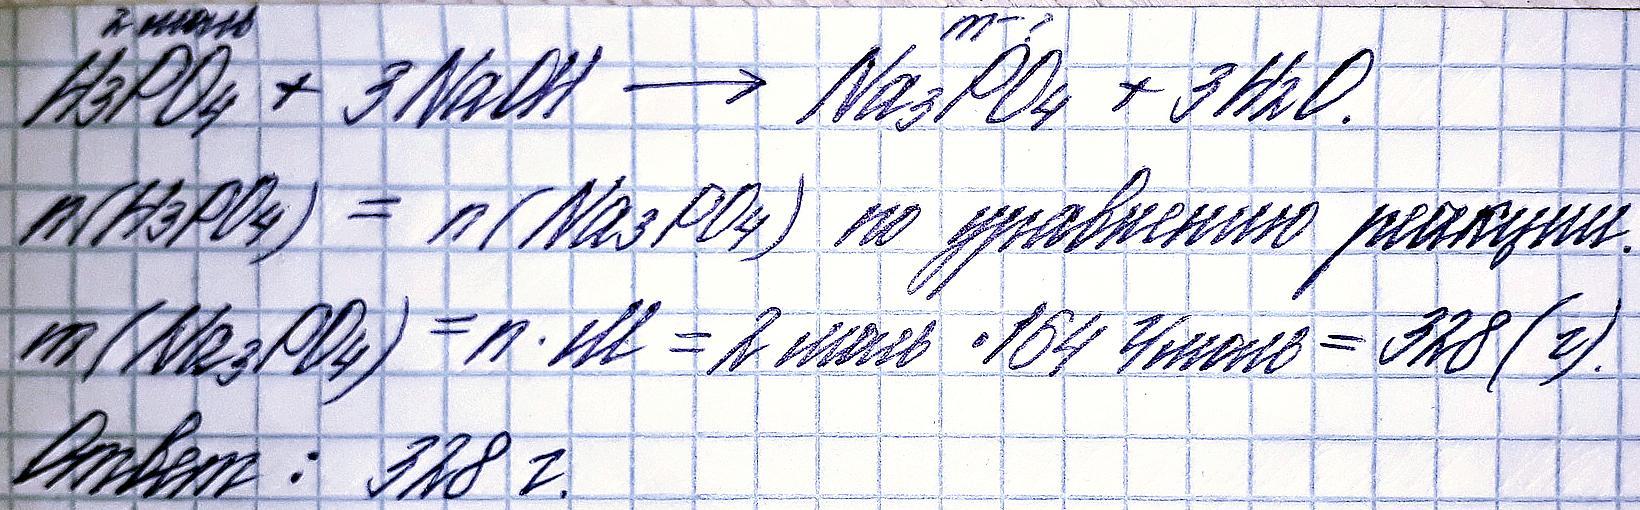 2 моль m-?
H3PO4 + 3NaOH → Na3PO4 + 3H2O.
n(H3PO4) = n(Na3PO4) по уравнению реакции.
m(Na3PO4) = n · M = 2 моль · 164 г/моль = 328 (г).
Ответ: 328 г.